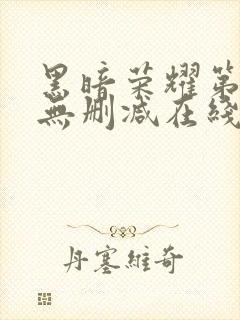 黑暗荣耀第
無删减在綫
丹塞維奇